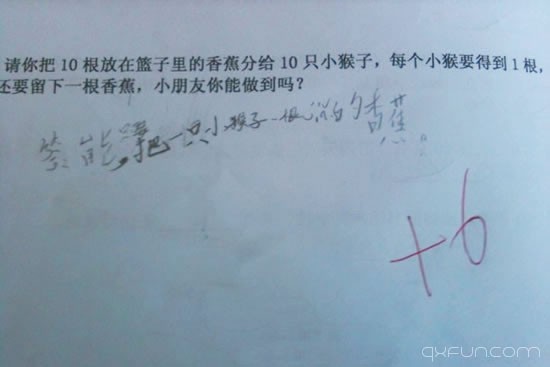 请你把 10 根放在篮子里的香蕉分给 10 只小猴子，每个小猴要得到 1 根，
还要留下一根香蕉，小朋友你能做到吗？
答能 把一只小猴子一根 的香蕉。
+6
qxfun.com